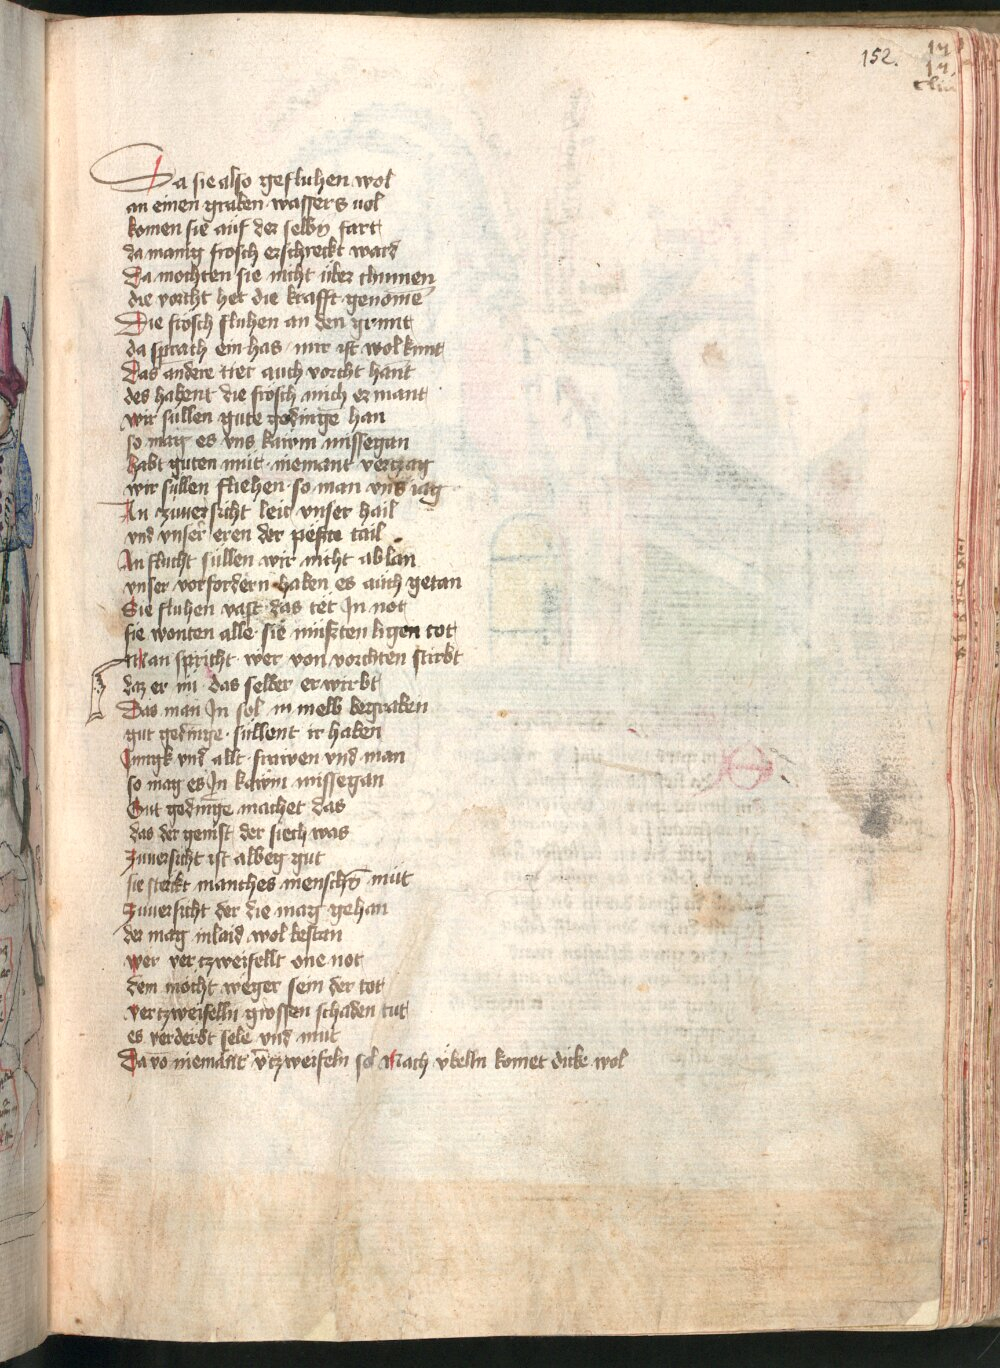 152.
Da sie also gefluhen wol
an einen graben wassers uol
komen sie auf der selbn fart
da manig frosch erschreckt ward
Da mochten sie nicht über chumen
die vorcht het die krafft genome
Die frosch fluhen an den grunt
da sprach ein has mir ist wol kunt
Das andere tier auch vorcht hant
des habent die frosch mich ermant
wir sullen gute gedinge han
so mag es vns kawm missegan
habt guten mut niemant verzag
wir sullen fliehen so man vns iag
An zuuersicht leit vnser hail
vnd vnser eren der peste tail
An flucht sullen wir nicht ablan
vnser vorfordern haben es auch getan
Sie fluhen vast das tet Jn not
sie wonten alle sie müsten ligen tot
Man spricht wer von vorchten stirbt
daz er im das selber erwirbt
Das man Jn sol in melb begraben
gut gedinge sullent ir haben
Jungk vnd allt frawen vnd man
so mag es Jn kawm missegan
Gut gedinge machet das
das der genist der siech was
Zuuersicht ist albeg gut
sie sterckt manches menschen mut
Zuuersicht der die mag gehan
der mag in laid wol bestan
wer vertzweifellt one not
dem mocht weger sein der tot
vertzweifelln grossen schaden tut
es verderbt sele vnd mut
Da vo niemant vtzweifeln sol Nach vbelln komet dicke wol